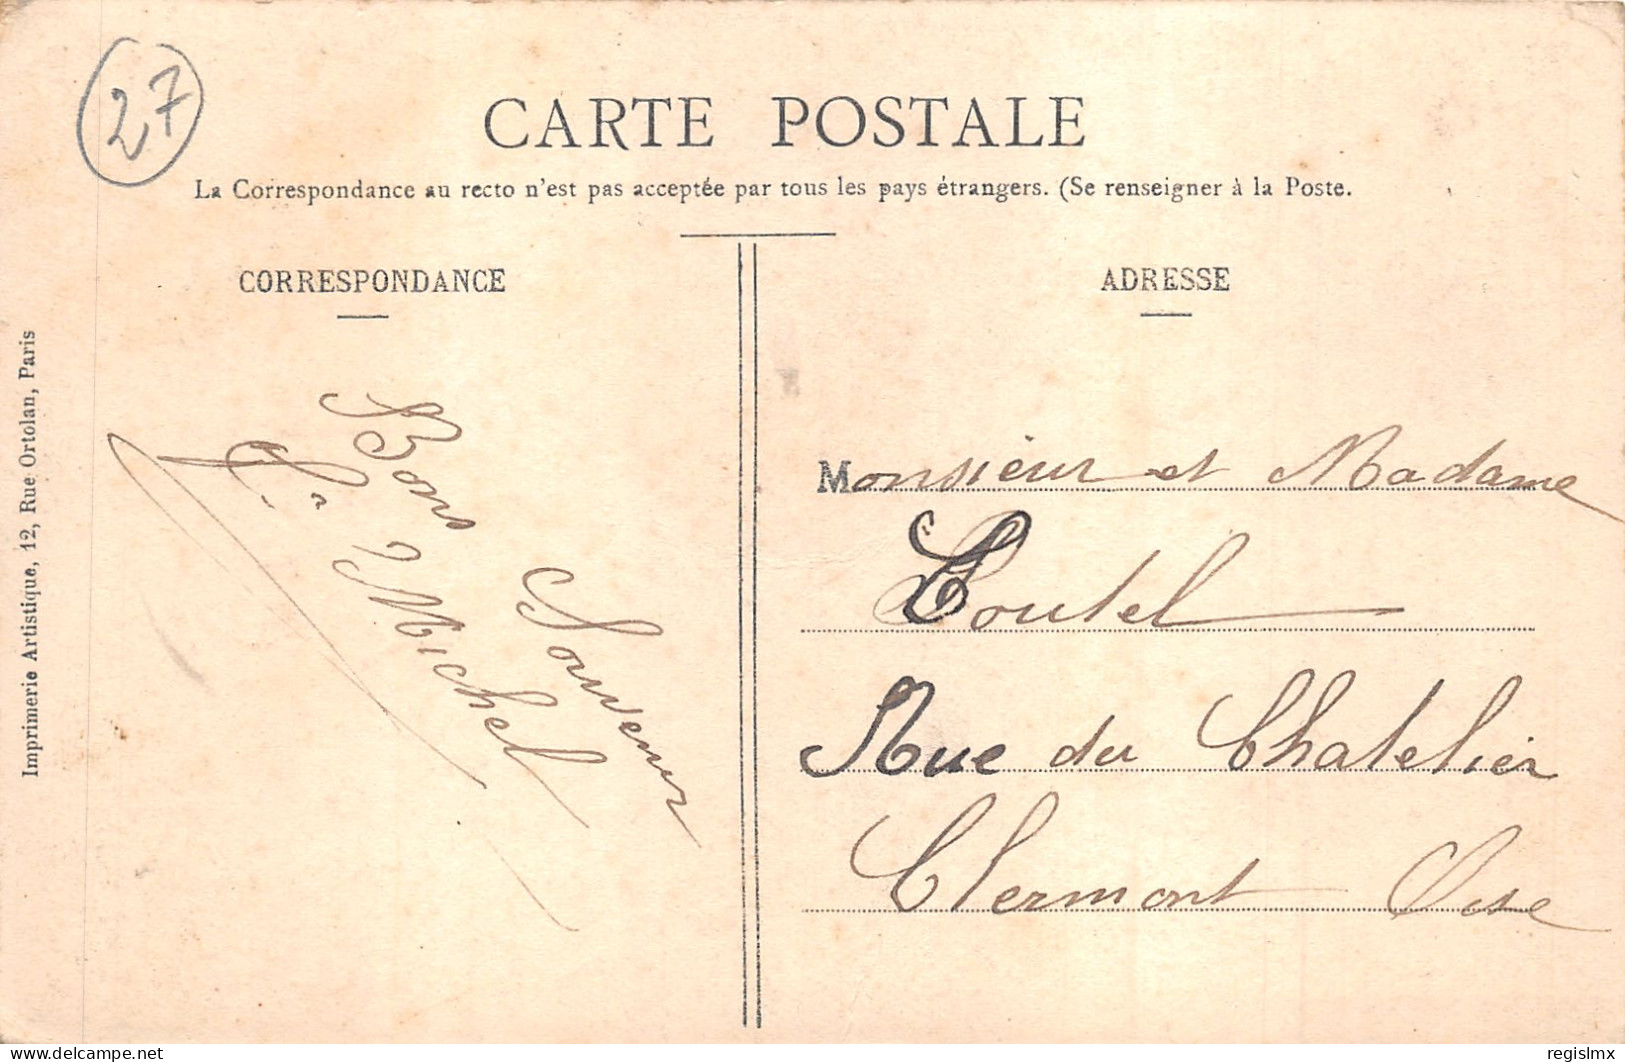 27
CARTE POSTALE
La Correspondance au recto n'est pas acceptée par tous les pays étrangers. (Se renseigner à la Poste.
CORRESPONDANCE
ADRESSE
Imprimerie Artistique, 12, Rue Ortolan, Paris
Bons
Souvenir
Michel
Monsieur et Madame
Coutel
Rue du Chatelier
Clermont Oise
delcampe.net
regislmx